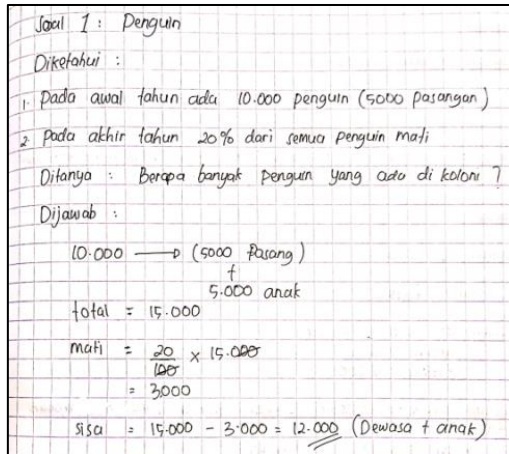 Soal 1 : Penguin
Diketahui :
1. Pada awal tahun ada 10.000 penguin (5000 pasangan)
2. Pada akhir tahun 20% dari semua penguin mati
Ditanya : Berapa banyak penguin yang ada di koloni ?
Dijawab :
10.000 → (5000 Pasang)
+
5.000 anak
total = 15.000
mati = 20/100 × 15.000
= 3.000
sisa = 15.000 - 3.000 = 12.000 (Dewasa + anak)